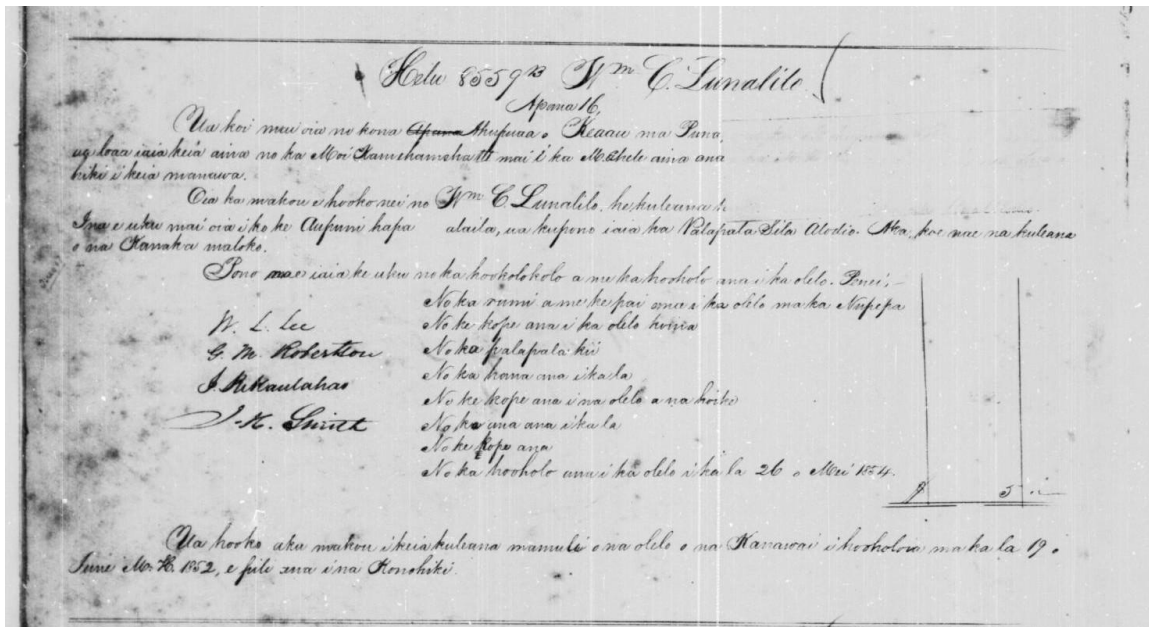 Helu 8559 B Wm C. Lunalilo
Apana 16,
Ua koi mai oia no kona Apana Ahupuaa o Keaau ma Puna,
ua loaa iaia keia aina no ka Moi Kamehameha III mai i ka Mahele aina ana
hiki i keia manawa.
Oia ka makou e hooko nei no Wm C. Lunalilo, he kuleana
Ina e uku mai oia i ko ke Aupuni hapa alaila, ua kupono iaia ka Palapala Sila Alodio. Aka, koe nae na kuleana
o na Kanaka maloko.
Pono nae iaia ke uku no ka hookolokolo a me ka hooholo ana i ka olelo. Penei,-
No ka rumi a me ke pai ana i ka olelo ma ka Nupepa
W. L. Lee No ke kope ana i ka olelo hoike
G. M. Robertson No ka palapala kii
J. Kekaulahao No ka hana ana i ka la
No ke kope ana i na olelo a na hoike
J. H. Smith No ka ana ana i ka la
No ke kope ana
No ka hooholo ana i ka olelo i ka la 26 o Mei 1854.
$ 5
Ua hooko aku makou i keia kuleana mamuli o na olelo o na Kanawai i hooholoia ma ka la 19 o
Iune M. H. 1852, e pili ana i na Konohiki.